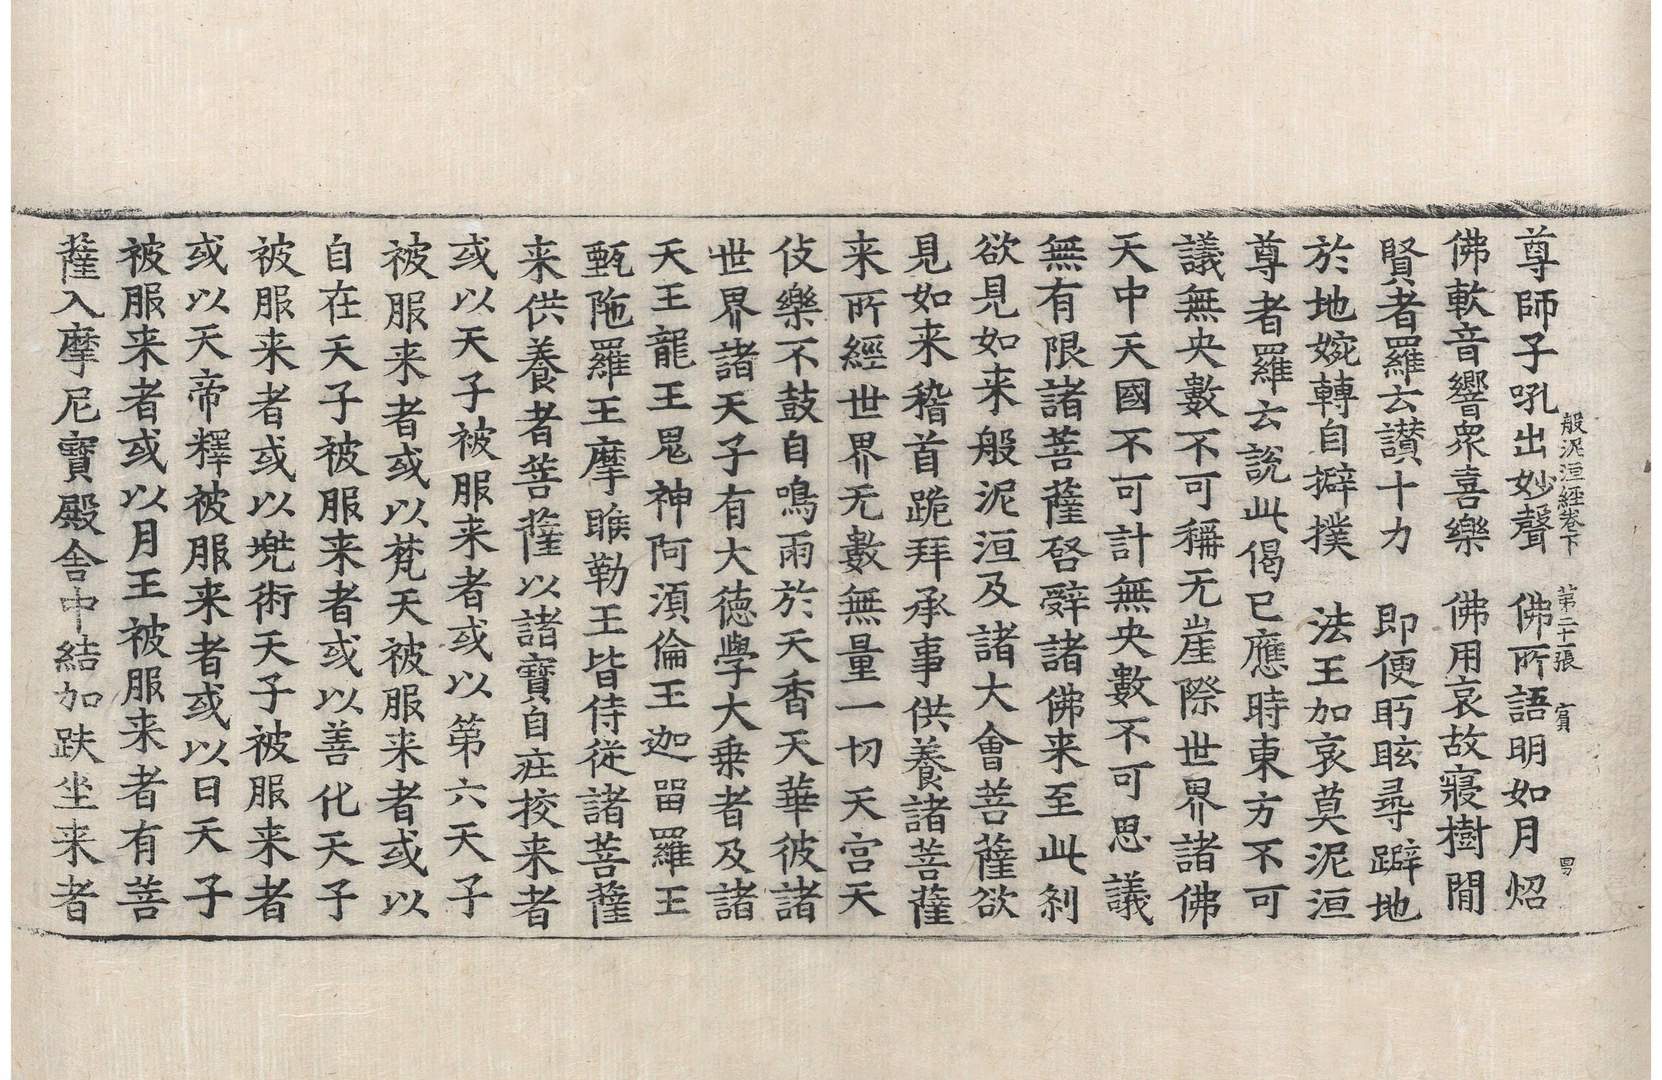 般泥洹經卷下 第二十一張 賔
尊師子吼出妙聲 佛所語明如月炤
佛軟音響衆喜樂 佛用哀故寢樹間
賢者羅云讃十力 即便眄眩尋躃地
於地婉轉自擗撲 法王加哀莫泥洹
尊者羅云說此偈已應時東方不可
議無央數不可稱无崖際世界諸佛
天中天國不可計無央數不可思議
無有限諸菩薩啓辝諸佛来至此刹
欲見如来般泥洹及諸大會菩薩欲
見如来稽首跪拜承事供養諸菩薩
来所經世界无數無量一切天宫天
伎樂不鼓自鳴雨於天香天華彼諸
世界諸天子有大德學大乗者及諸
天王龍王鬼神阿須倫王迦留羅王
甄陁羅王摩睺勒王皆侍従諸菩薩
来供養者菩薩以諸寶自庄挍来者
或以天子被服来者或以第六天子
被服来者或以梵天被服来者或以
自在天子被服来者或以善化天子
被服来者或以兠術天子被服来者
或以天帝釋被服来者或以日天子
被服来者或以月王被服来者有菩
薩入摩尼寶殿舎中結加趺坐来者